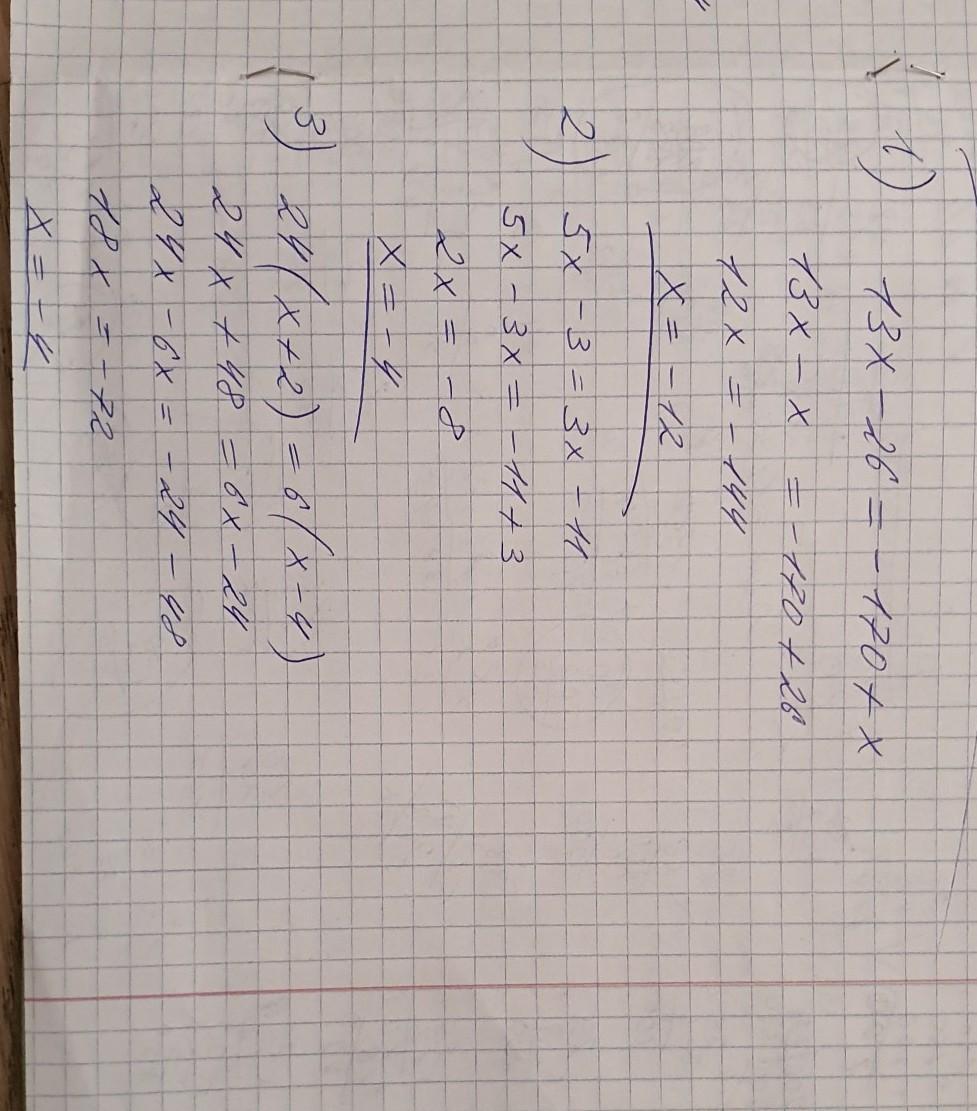 1) 13x - 26 = -170 + x
13x - x = -170 + 26
12x = -144
x = -12
2) 5x - 3 = 3x - 11
5x - 3x = -11 + 3
2x = -8
x = -4
3) 24(x+2) = 6(x-4)
24x + 48 = 6x - 24
24x - 6x = -24 - 48
18x = -72
x = -4